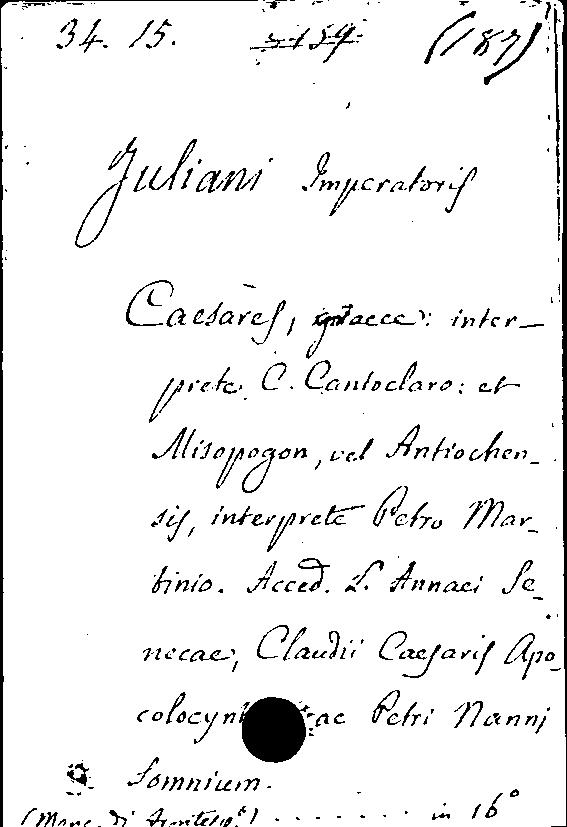 34. 15. 159 (187)
Juliani Imperatoris
Caesares, graece: inter-
prete C. Cantoclaro: et
Misopogon, vel Antiochen-
sis, interprete Petro Mar-
tinio. Acced. L. Annaei Se-
necae, Claudii Caesaris Apo-
colocyn ac Petri Nannj
Somnium.
(Manc. di ........ in 16°